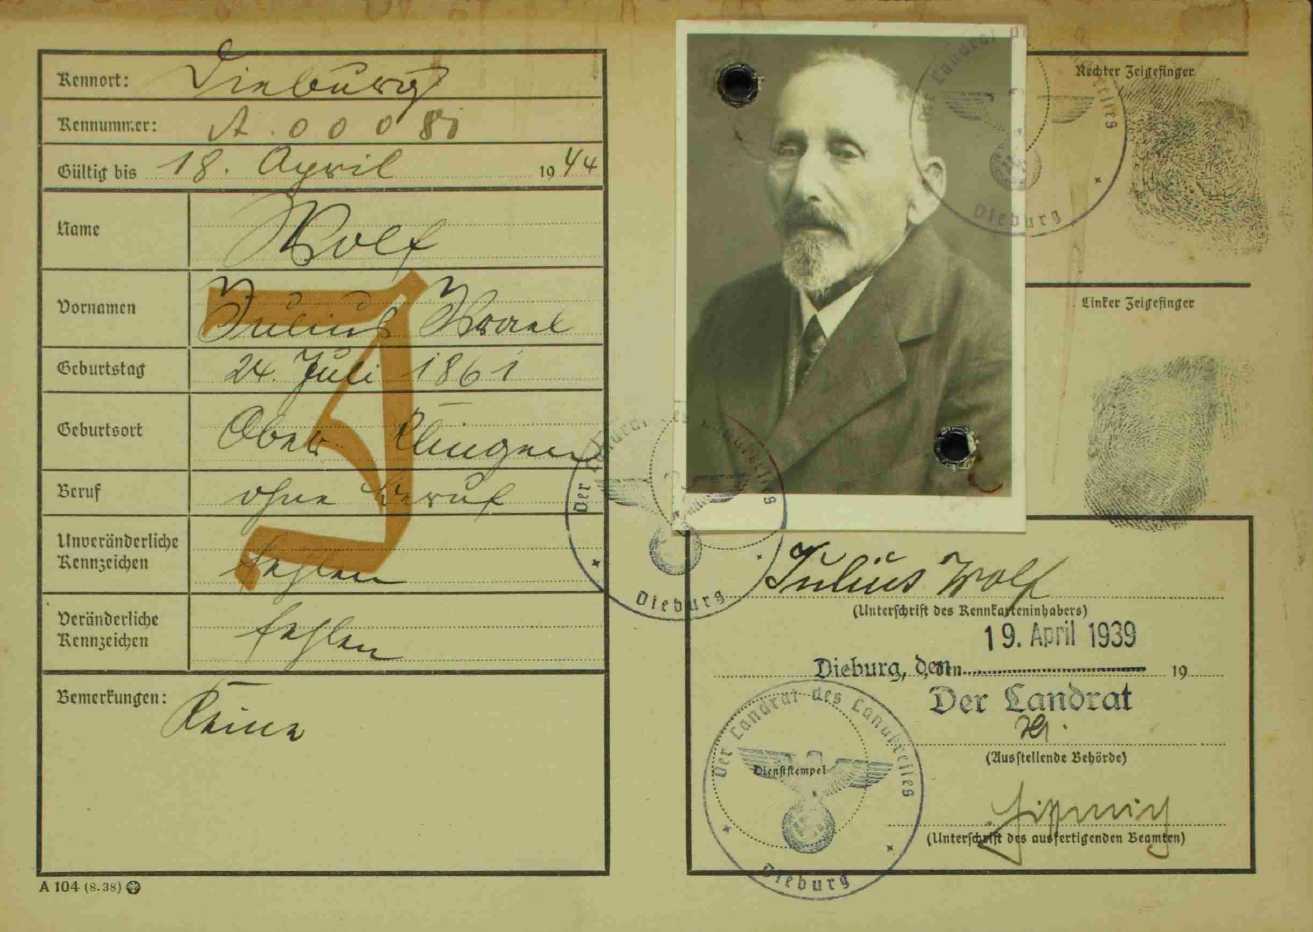 Kennort: Dieburg
Kennnummer: A.00080
Gültig bis 18. April 1944
Name Wolf
Vornamen Julius Israel
Geburtstag 24. Juli 1861
Geburtsort Ober Klingen
Beruf ohne Beruf
Unveränderliche
Kennzeichen fehlen
Veränderliche
Kennzeichen fehlen
Bemerkungen: Keine
A 104 (8.38)
Der Landrat des Landkreises
Dieburg
Rechter Zeigefinger
Linker Zeigefinger
Der Landrat des Landkreises
Dieburg
Julius Wolf
(Unterschrift des Kennkarteninhabers)
19. April 1939
Dieburg, den 19
Der Landrat
(Ausstellende Behörde)
Der Landrat des Landkreises
Dienststempel
Dieburg
(Unterschrift des ausfertigenden Beamten)